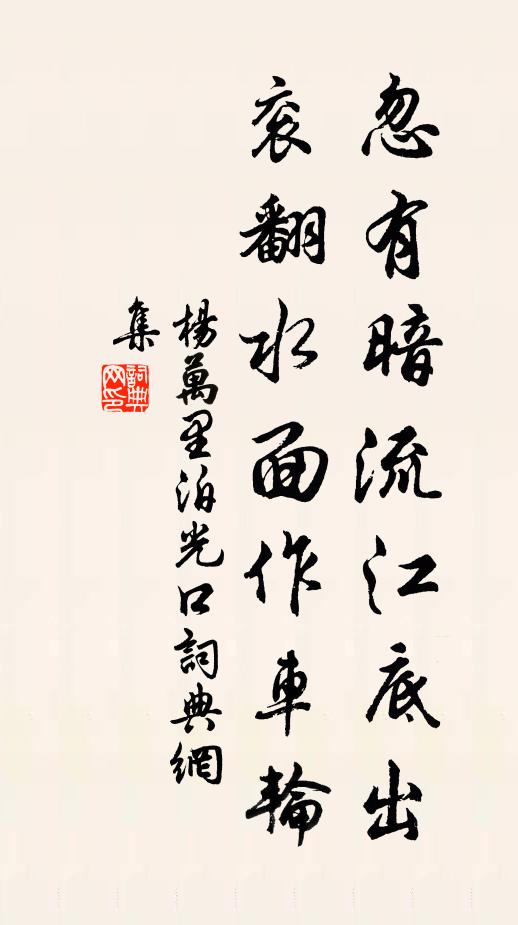 忽有暗流江底出
衮翻水面作車輪
楊萬里泊光口詞典網
集
詞典
网印